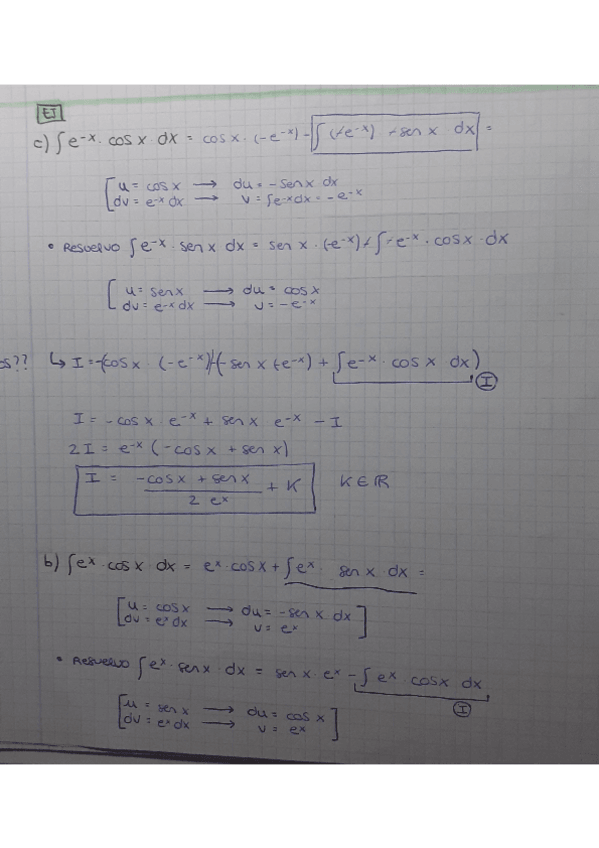 EJ
c) ∫e^-x · cos x · dx = cos x · (-e^-x) - ∫(+e^-x) + sen x dx =
[u = cos x → du = -sen x dx
dv = e^-x dx → v = ∫e^-x dx = -e^-x
• RESUELVO ∫e^-x · sen x dx = sen x · (-e^-x) + ∫-e^-x · cos x · dx
[u = sen x → du = cos x
dv = e^-x dx → v = -e^-x
os?? ↳ I = -(cos x · (-e^-x) + (-sen x (e^-x) + ∫e^-x · cos x dx)
I
I = -cos x · e^-x + sen x e^-x - I
2I = e^-x (-cos x + sen x)
I = (-cos x + sen x) / (2 e^x) + K K ∈ ℝ
b) ∫e^x · cos x · dx = e^x · cos x + ∫e^x · sen x dx =
[u = cos x → du = -sen x dx
dv = e^x dx → v = e^x]
• RESUELVO ∫e^x · sen x · dx = sen x · e^x - ∫e^x cos x dx
I
[u = sen x → du = cos x
dv = e^x dx → v = e^x]